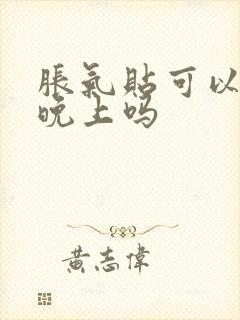 脹氣貼可以
晚上吗
黃志偉